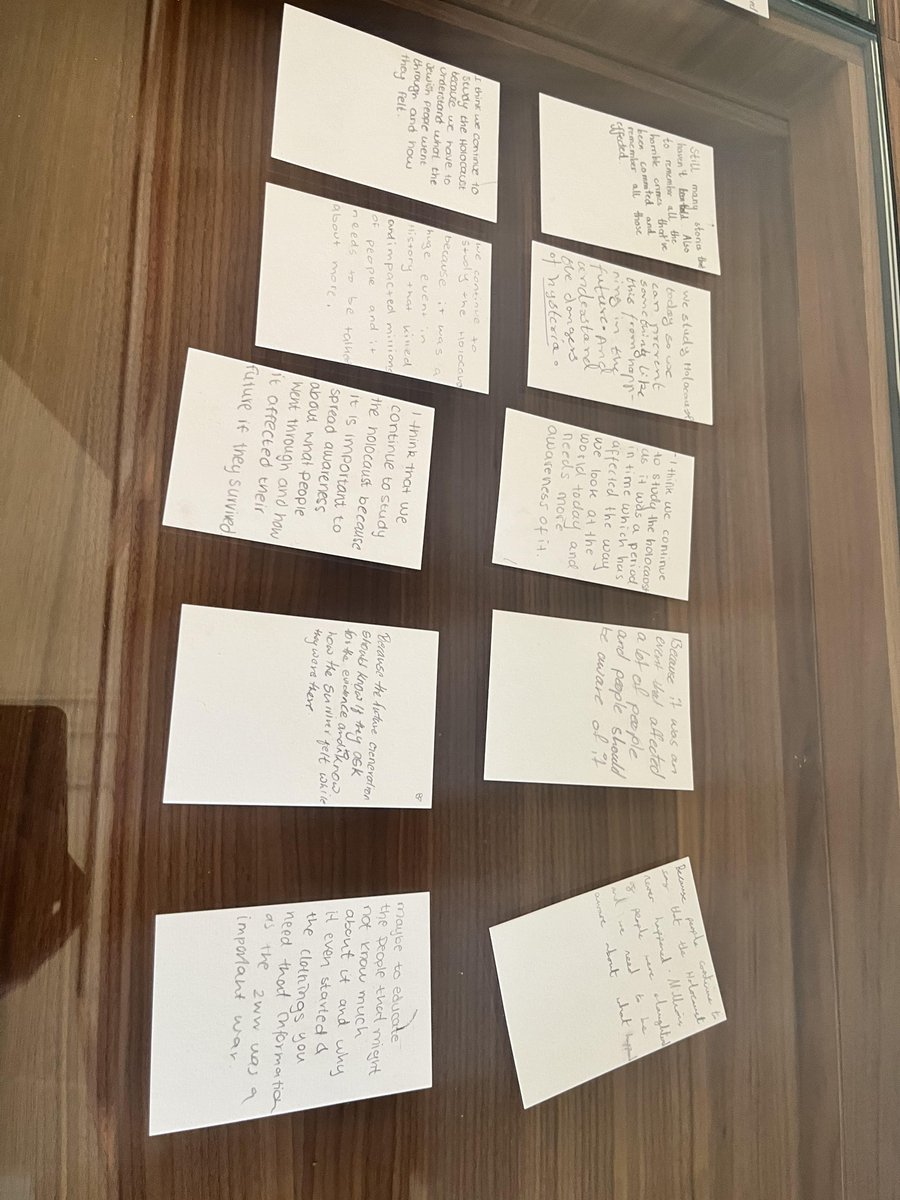 Still many stories that
haven't told Also
to remember all the
horrible crimes that've
been commited and
remember all those
effected
We study Holocaust
today so we
can prevent
something like
this from happ-
ning in the
future. And
undeastand
the dangers
of hysteria.
- I think we continue
to study the holocaust
as it was a period
in time which has
affected the way
we look at the
world today and
needs more
awareness of it.
Because it was an
event that affected
a lot of people
and people should
be aware of it
Because people continue to
say that the Holocaust
never happened. Millions
of people were slaughtered
and we need to be
aware about what happ
I think we continue to
study the Holocaust
because we have to
understand what the
Jewish people went
through and how
they felt.
we continue to
study the holocaus
because it was a
huge event in
History that killed
and impacted millions
of people and it
needs to be talked
about more.
I think that we
continue to study
the holocaust because
it is important to
spread awareness
about what people
went through and how
it affected their
future if they survived
Because the future Generation
should know if they ask
for the evidence and to know
how the Surviver felt while
they were there.
maybe to educate
the people that might
not know much
about it and why
it even started &
the clothings you
need that information
as the 2ww was a
important war.